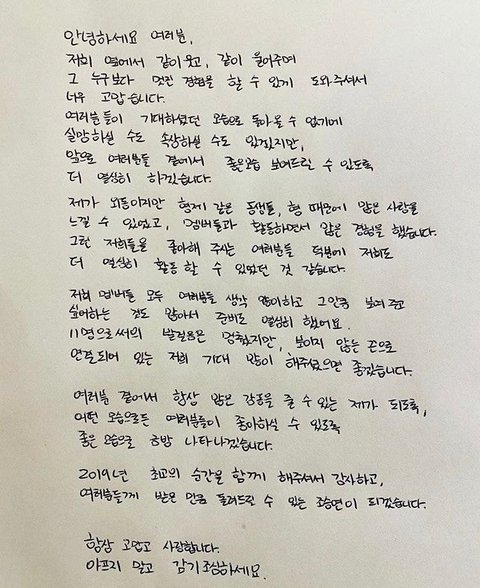 안녕하세요 여러분,
저희 옆에서 같이 웃고, 같이 울어주며
그 누구보다 멋진 경험을 할 수 있게 도와주셔서
너무 고맙습니다.
여러분들이 기대하셨던 모습으로 돌아올 수 없기에
실망하실 수도 속상하실 수도 있겠지만,
앞으로 여러분들 곁에서 좋은모습 보여드릴 수 있도록
더 열심히 하겠습니다.
제가 외동이지만 형제 같은 동생들, 형 때문에 많은 사랑을
느낄 수 있었고, 멤버들과 활동하면서 많은 경험을 했습니다.
그런 저희들을 좋아해 주시는 여러분들 덕분에 저희도
더 열심히 활동 할 수 있었던 것 같습니다.
저희 멤버들 모두 여러분들 생각 많이하고 그만큼 보여 주고
싶어하는 것도 많아서 준비도 열심히 했어요.
11명으로써의 발걸음은 멈췄지만, 보이지 않는 끈으로
연결되어 있는 저희 기대 많이 해주셨으면 좋겠습니다.
여러분 곁에서 항상 많은 감동을 줄 수 있는 제가 되도록,
어떤 모습으로든 여러분들이 좋아하실 수 있도록
좋은 모습으로 금방 나타나겠습니다.
2019년 최고의 순간을 함께 해주셔서 감사하고,
여러분들께 받은 만큼 돌려드릴 수 있는 조승연이 되겠습니다.
항상 고맙고 사랑합니다.
아프지 말고 감기 조심하세요.